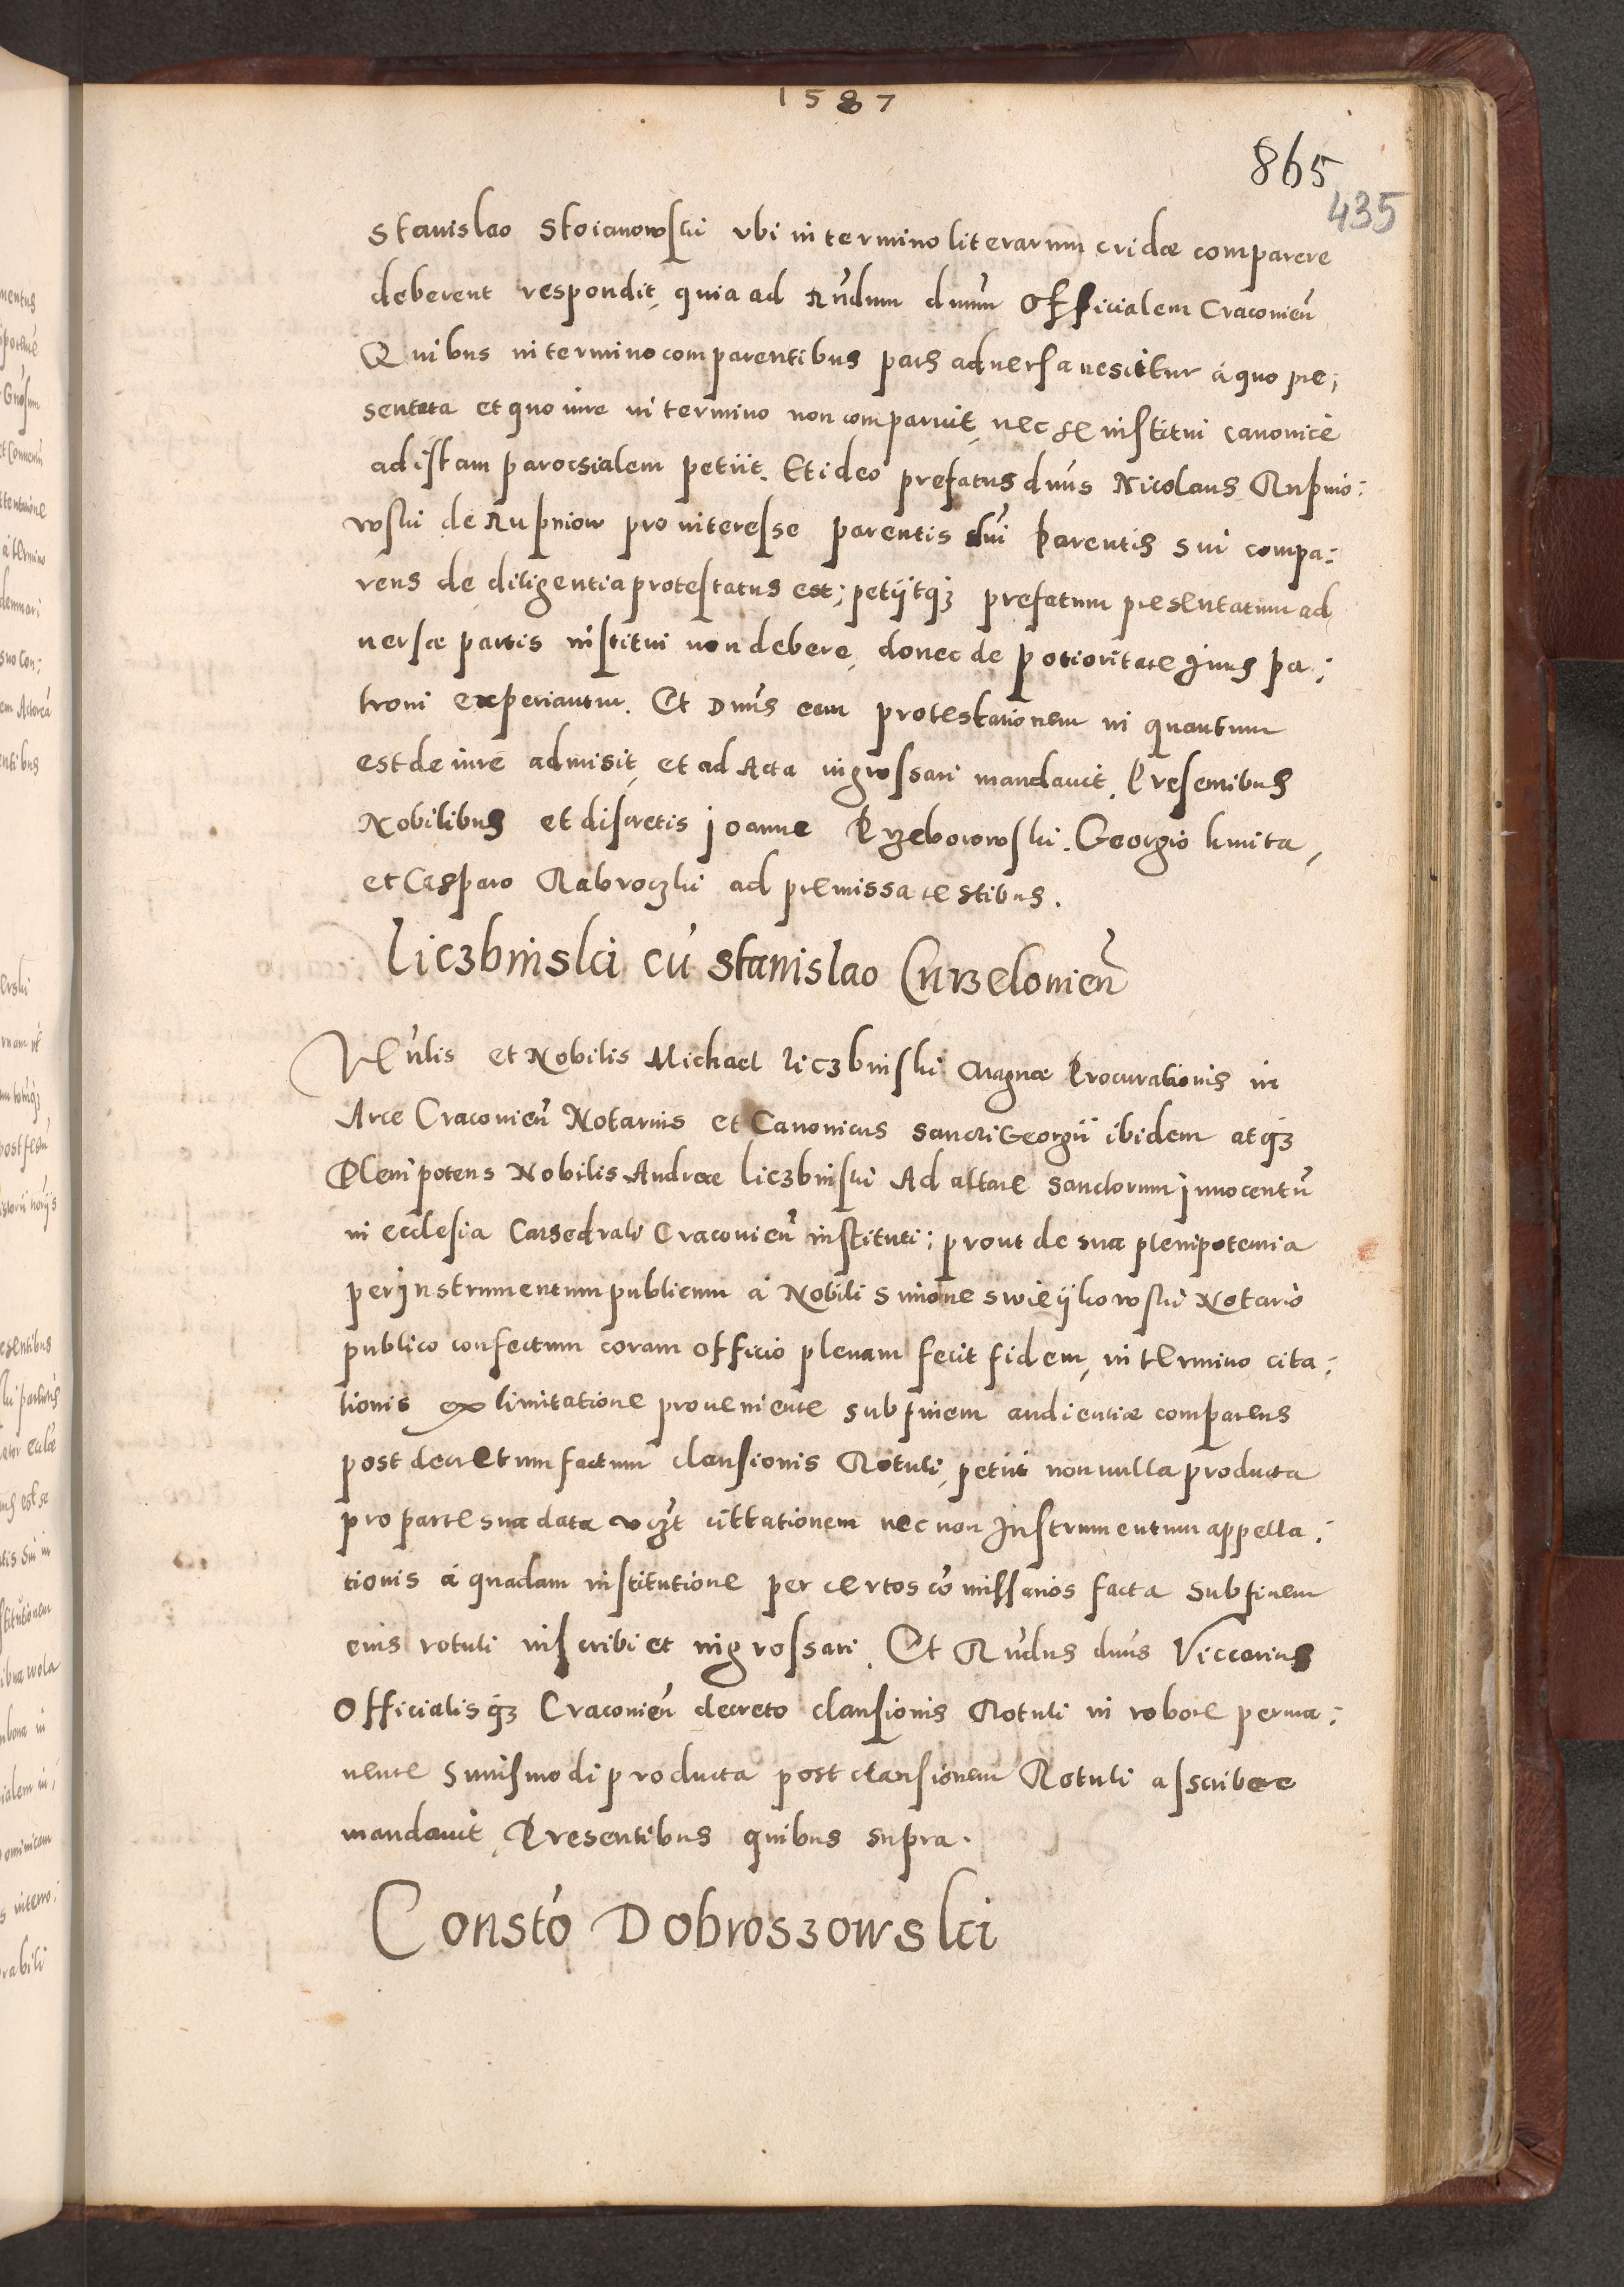 1587
865
435
Stanislao Stoianowski vbi in termino literarum cridæ comparere
deberent respondit, quia ad Rndum dnum Officialem Cracovien
Quibus in termino comparentibus pars adversa nescitur à quo pre;
sentata et quo iure in termino non comparuit, nec se institui canonicè
ad istam parochialem petiit. Et ideo prefatus dnus Nicolaus Rupnio:
wski de Rupniow pro interesse parentis sui parentis sui compa:
rens de diligentia protestatus est; petijtqꝫ prefatum presentatum ad
uersæ partis institui non debere, donec de potioritate Iuris pa:
troni experiantur. Et Dnus eam protestationem in quantum
est de iure admisit, et ad Acta ingrossari mandavit. Presentibus
Nobilibus et discretis Joanne Przeborowski. Georgio Kmita,
et Casparo Rabroczki ad premissa testibus.
Liczbinski cũ Stanislao Curzelovien
Venlis et Nobilis Michael Liczbinski Magnæ Procurationis in
Arce Cracovien Notarius et Canonicus Sancti Georgii ibidem atqꝫ
Plenipotens Nobilis Andreæ Liczbinski Ad altare Sanctorum Innocentũ
in ecclesia Cathedrali Cracovien instituti; prout de sua plenipotentia
per Instrumentum publicum à Nobili Simone Swieijkowski Notario
publico confectum coram Officio plenam fecit fidem, in termino cita:
tionis ex limitatione proveniente sub finem audientiæ comparens
post decretum factum clausionis Rotuli, petiit nonnulla producta
pro parte sua data vczt cittationem nec non Instrumentum appella:
tionis à quadam institutione per certos cõmissarios facta sub finem
eius rotuli inscribi et ingrossari. Et Rndus dnus Viccarius
Officialisqꝫ Cracovien decreto clausionis Rotuli in robore perma:
nente huiusmodi producta post clausionem Rotuli asscribere
mandavit, Presentibus quibus supra.
Constõ Dobroszowski